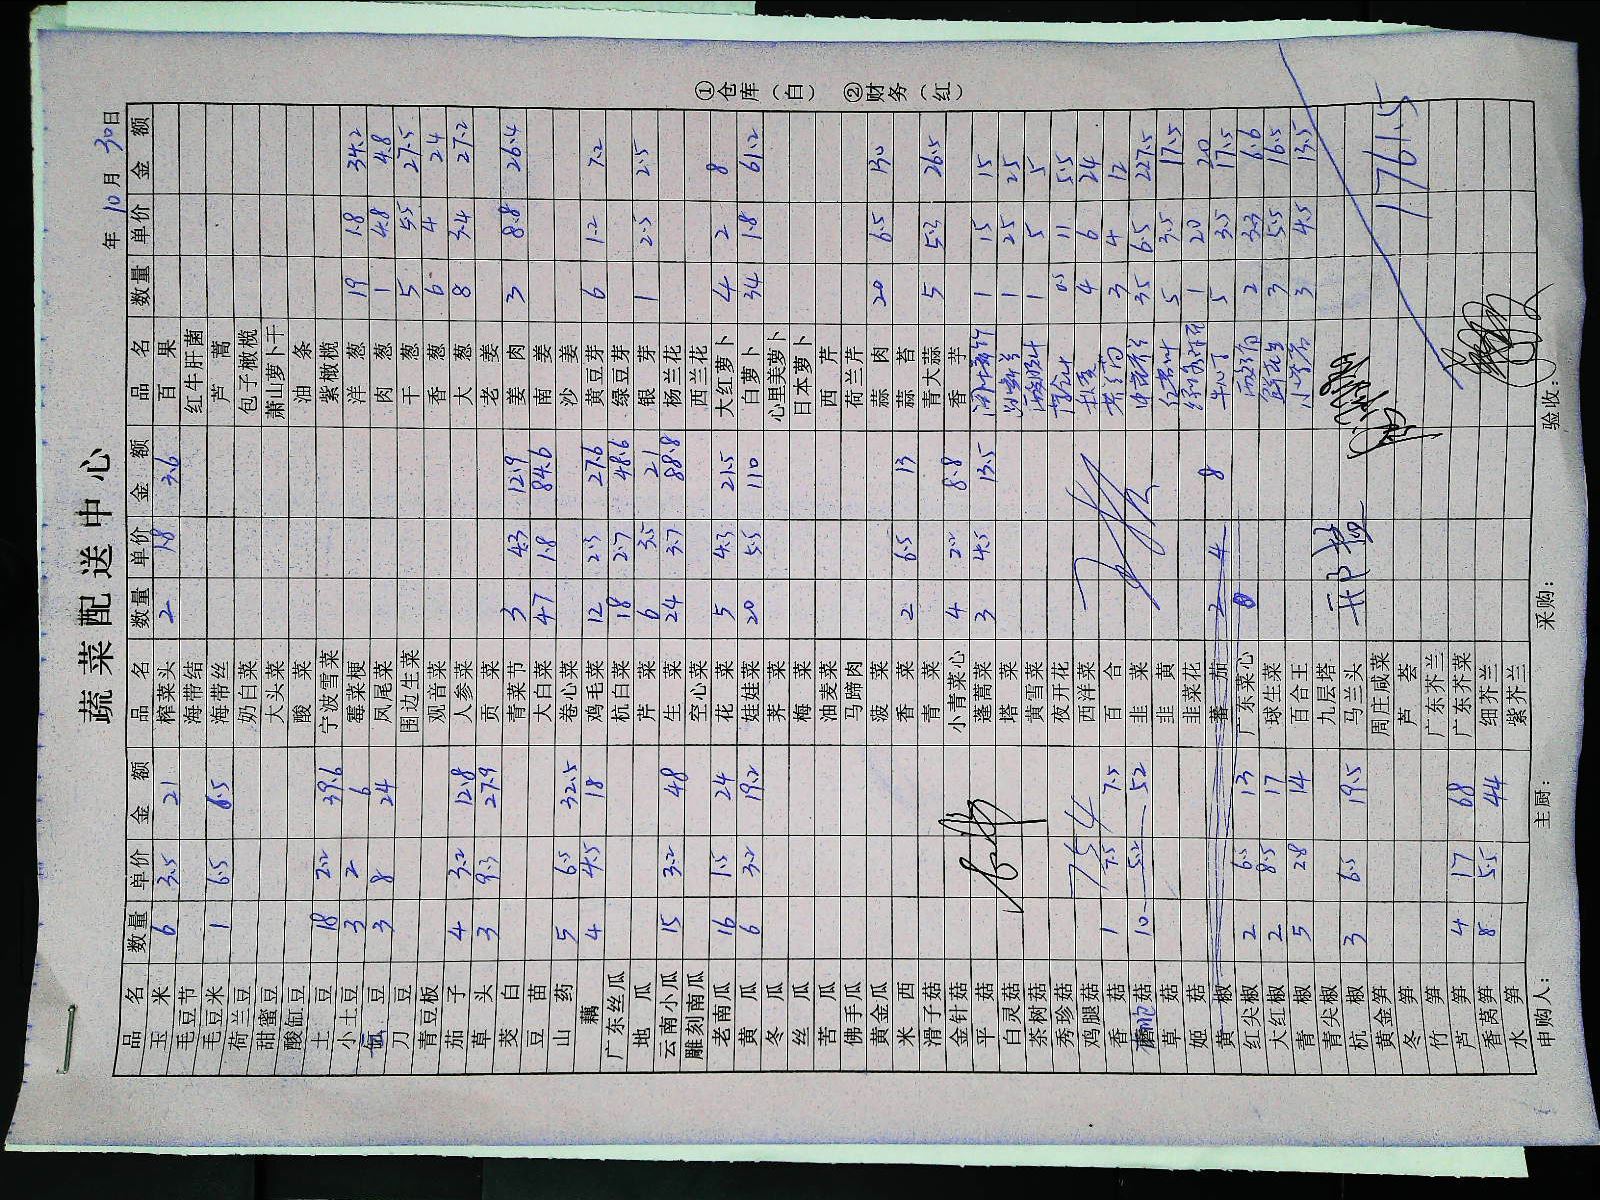 蔬菜配送中心
年 10 月 30 日
品名 数量 单价 金额 品名 数量 单价 金额 品名 数量 单价 金额
玉米 6 3.5 21 榨菜头 2 1.8 3.6 百果
毛豆节 海带结 红牛肝菌
毛豆米 1 6.5 6.5 海带丝 芦蒿
荷兰豆 奶白菜 包子橄榄
甜蜜豆 大头菜 萧山萝卜干
酸缸豆 酸菜 油条
土豆 18 2.2 39.6 宁波雪菜 紫橄榄
小土豆 3 2 6 霉菜梗 洋葱 19 1.8 34.2
豆 3 8 24 凤尾菜 肉葱 1 4.8 4.8
刀豆 围边生菜 干葱 5 5.5 27.5
青豆板 观音菜 香葱 6 4 24
茄子 4 3.2 12.8 人参菜 大葱 8 3.4 27.2
草头 3 9.3 27.9 贡菜 老姜
茭白 青菜节 3 4.3 12.9 姜肉 3 8.8 26.4
豆苗 大白菜 47 1.8 84.6 南姜
山药 5 6.5 32.5 卷心菜 沙姜
藕 4 4.5 18 鸡毛菜 12 2.3 27.6 黄豆芽 6 1.2 7.2
广东丝瓜 杭白菜 18 2.7 48.6 绿豆芽
地瓜 芹菜 6 3.5 21 银芽 1 2.5 2.5
云南小瓜 15 3.2 48 生菜 24 3.7 88.8 杨兰花
雕刻南瓜 空心菜 西兰花
老南瓜 16 1.5 24 花菜 5 4.3 21.5 大红萝卜 4 2 8
黄瓜 6 3.2 19.2 娃娃菜 20 5.5 110 白萝卜 34 1.8 61.2
冬瓜 荠菜 心里美萝卜
丝瓜 梅菜 日本萝卜
苦瓜 油麦菜 西芹
佛手瓜 马蹄肉 荷兰芹
黄金瓜 菠菜 蒜肉 20 6.5 130
米西 香菜 2 6.5 13 蒜苔
滑子菇 青菜 青大蒜 5 5.3 26.5
金针菇 小青菜心 4 2.2 8.8 香芋
平菇 蓬蒿菜 3 4.5 13.5 1 15 15
白灵菇 塔菜 1 25 25
茶树菇 黄雪菜 1 5 5
秀珍菇 夜开花 0.5 11 5.5
鸡腿菇 754 西洋菜 4 6 24
香菇 1 7.5 7.5 百合 3 4 12
菇 10 5.2 52 韭菜 35 6.5 227.5
草菇 韭黄 5 3.5 17.5
姬菇 韭菜花 1 20 20
黄椒 蕃茄 2 4 8 5 3.5 17.5
红尖椒 2 6.5 13 广东菜心 2 3.3 6.6
大红椒 2 8.5 17 球生菜 3 5.5 16.5
青椒 5 2.8 14 百合王 3 4.5 13.5
青尖椒 九层塔
杭椒 3 6.5 19.5 马兰头
黄金笋 周庄咸菜 1761.5
冬笋 芦荟
竹笋 广东芥兰
芦笋 4 17 68 广东芥菜
香莴笋 8 5.5 44 细芥兰
水笋 紫芥兰
申购人: 主厨: 采购: 验收:
①仓库(白) ②财务(红)